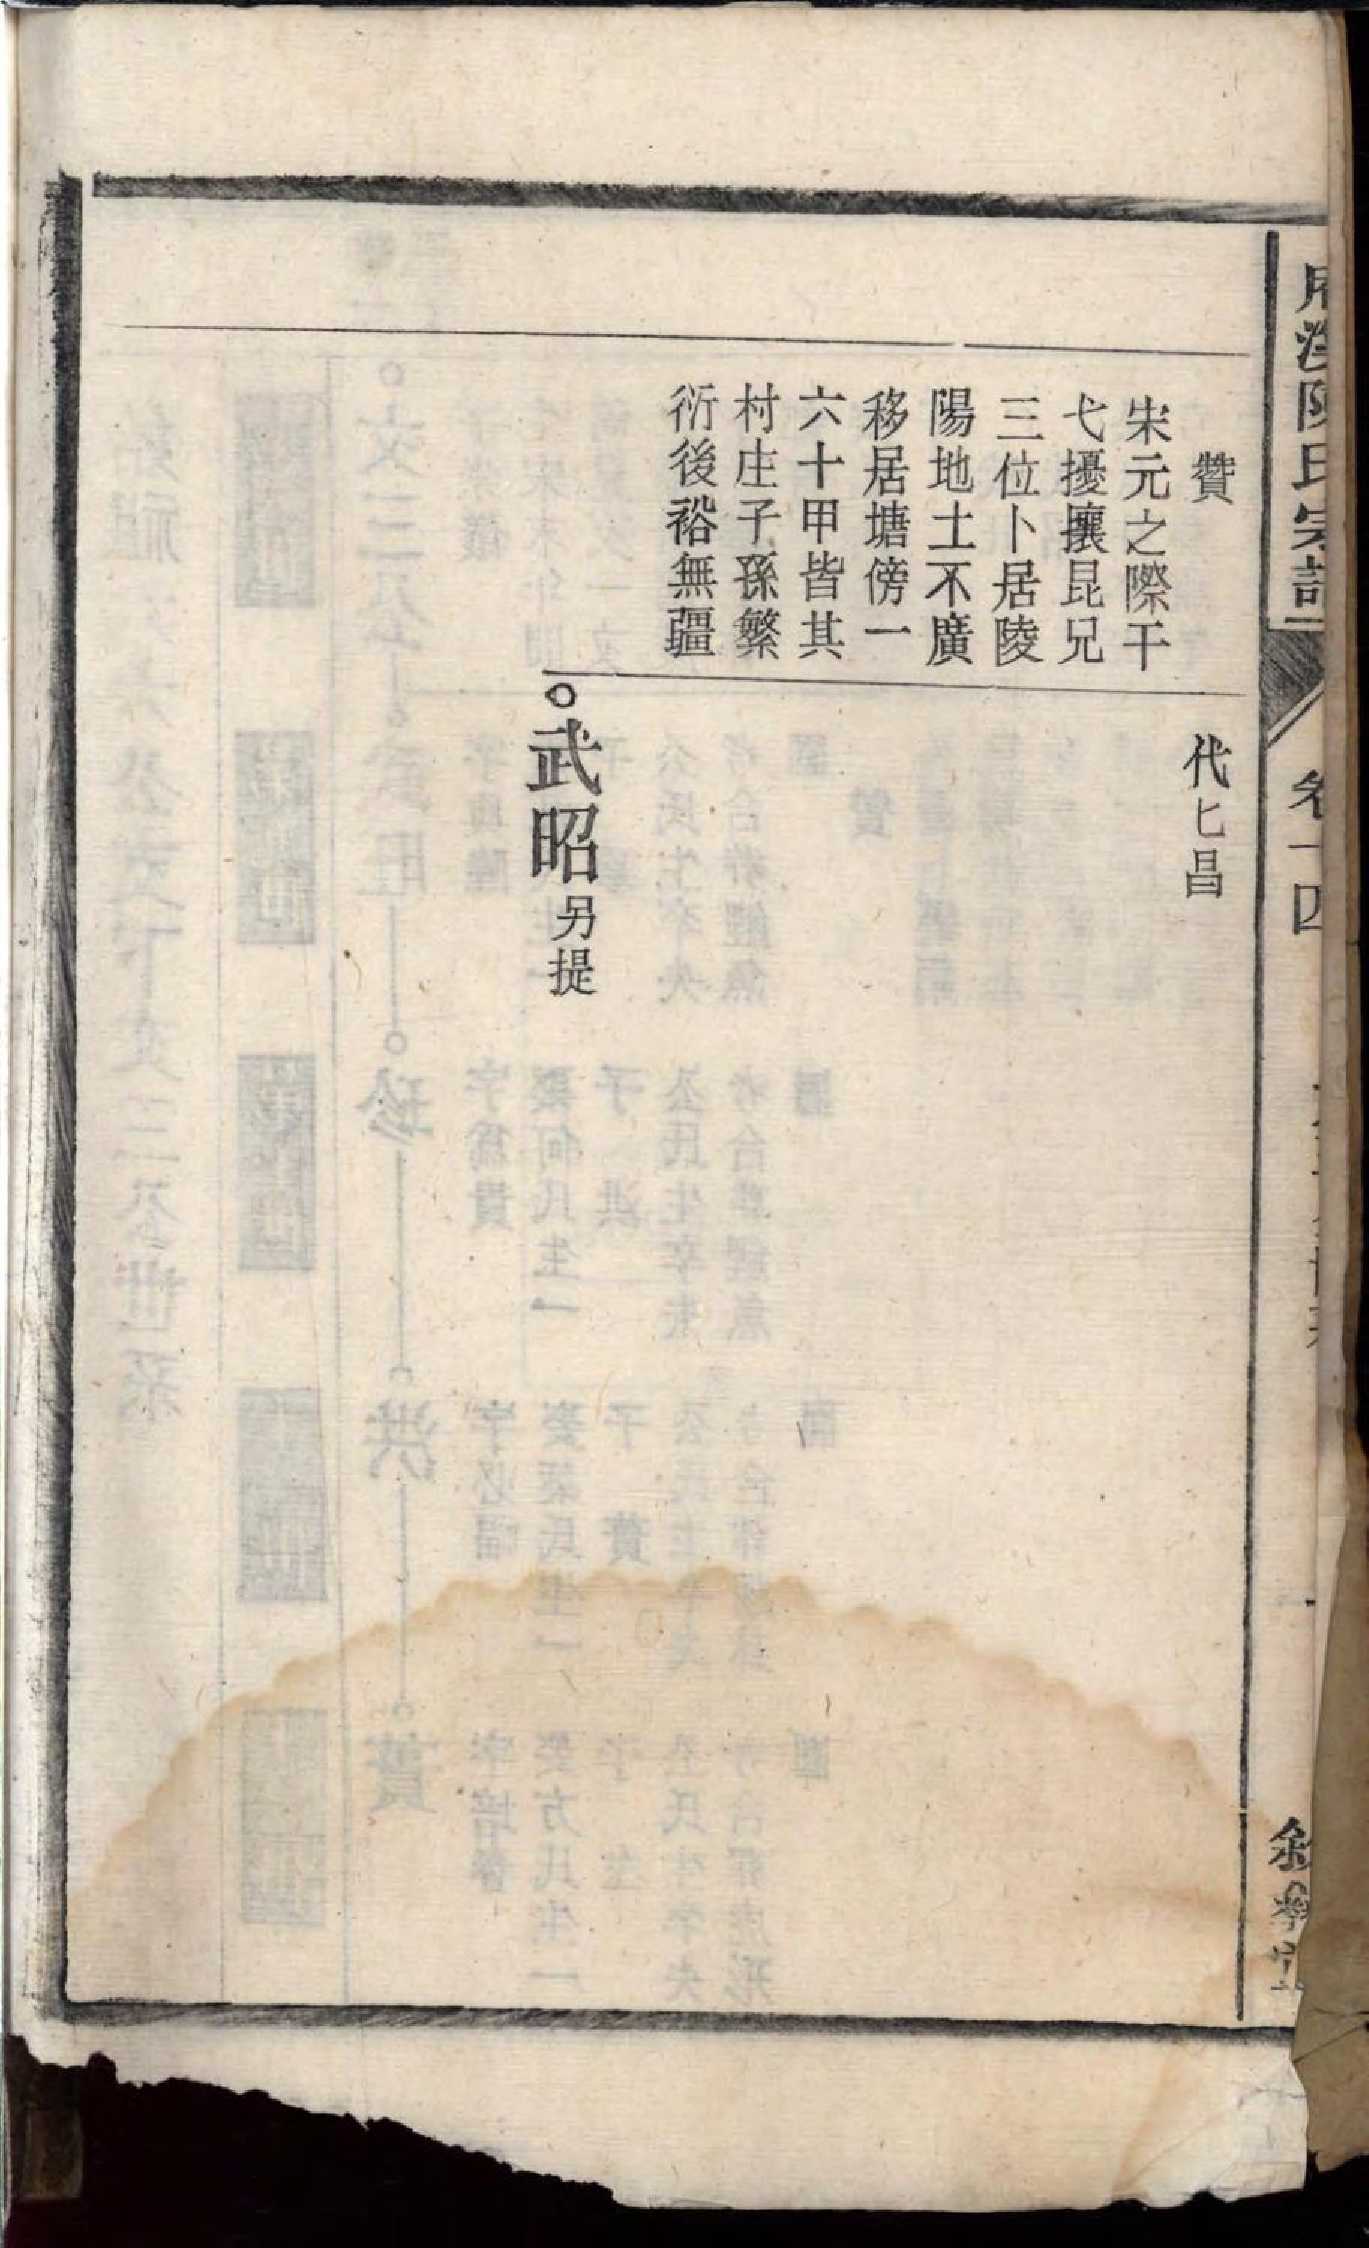 陳氏宗譜
卷十四
贊
宋元之際干
弋擾攘昆兄
三位卜居陵
陽地土不廣
移居塘傍一
六十甲皆其
村庄子孫繁
衍後裕無疆
代匕昌
武昭另提